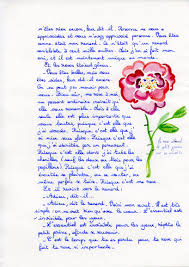 n'êtes rien encore, leur dit-il. Personne ne vous a
apprivoisées et vous n'avez apprivoisé personne. Vous êtes
comme était mon renard. Ce n'était qu'un renard
semblable à cent mille autres. Mais j'en ai fait mon
ami, et il est maintenant unique au monde.
Et les roses étaient gênées.
- Vous êtes belles, mais vous
êtes vides, leur dit-il encore.
On ne peut pas mourir pour
vous. Bien sûr, ma rose à moi
un passant ordinaire croirait qu'
elle vous ressemble. Mais à elle
seule elle est plus importante que
vous toutes, puisque c'est elle que
j'ai arrosée. Puisque c'est elle que j'ai
mise sous globe. Puisque c'est elle
que j'ai abritée par un paravent.
Puisque c'est elle dont j'ai tué les
chenilles (sauf les deux ou trois pour les
papillons). Puisque c'est elle que j'ai
écoutée se plaindre, ou se vanter, ou
même quelquefois se taire. Puisque c'est ma rose.
Et il revint vers le renard :
- Adieu, dit-il...
- Adieu, dit le renard. Voici mon secret. Il est très
simple : on ne voit bien qu'avec le cœur. L'essentiel est
invisible pour les yeux.
- L'essentiel est invisible pour les yeux, répéta
le petit prince, afin de se souvenir.
- C'est le temps que tu as perdu pour ta rose qui
fait ta rose si importante.